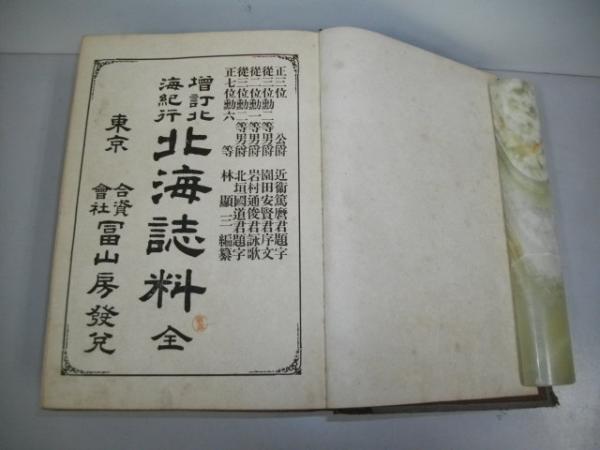 正三位　公爵　近衞篤麿君題字
從三位勳二等男爵　園田安賢君序文
從二位勳一等男爵　岩村通俊君詠歌
從三位勳二等男爵　北垣國道君題字
正七位勳六等　林顯三編纂
增訂北海紀行
北海誌料 全
東京 合資會社 冨山房發兌